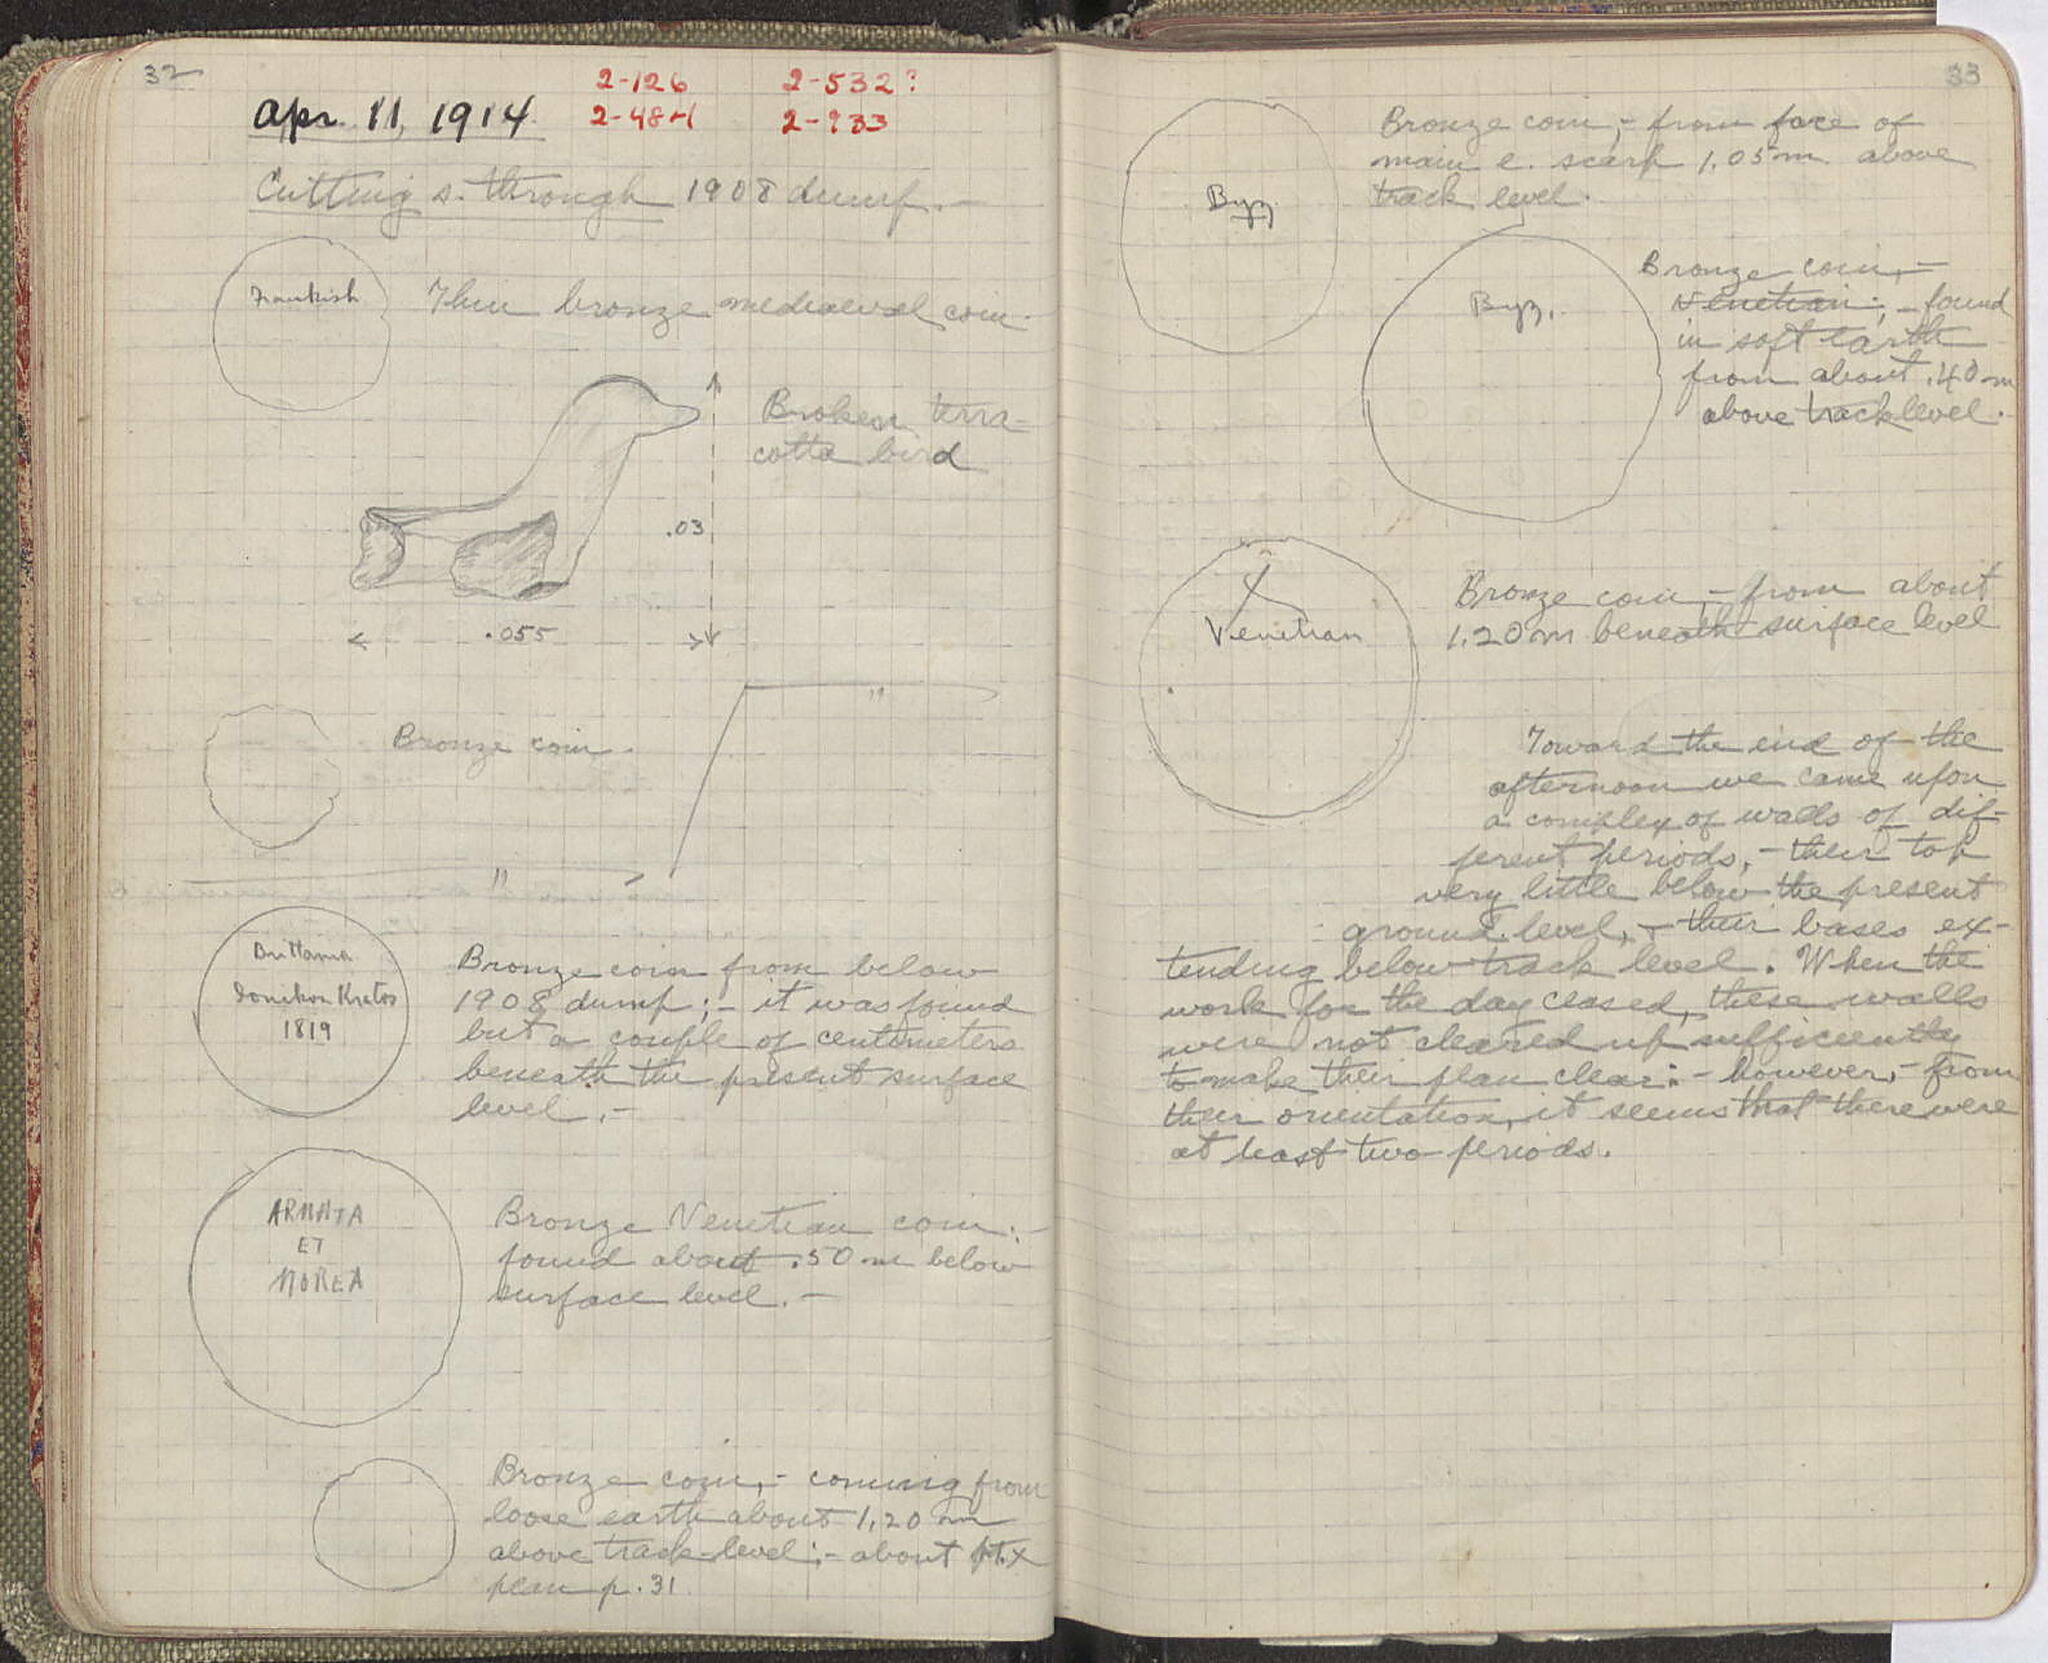 32
2-126 2-532?
Apr. 11, 1914. 2-48-1 2-933
Cutting s. through 1908 dump.—
Frankish
Thin bronze mediaeval coin.
Broken terra-
cotta bird
.03
.055
"
Bronze coin.
"
Brittania
Ionikon Kratos
1819
Bronze coin from below
1908 dump;- it was found
but a couple of centimeters
beneath the present surface
level.-
ARMATA
ET
MOREA
Bronze Venetian coin:-
found about .50 m below
surface level.—
Bronze coin,- coming from
loose earth about 1.20 m
above track-level;- about pt. x
plan p. 31.
33
Byz.
Bronze coin,- from face of
main e. scarp 1.05 m above
track level.
Byz.
Bronze coin,-
Venetian;- found
in soft earth
from about .40 m
above track level.
Venetian
Bronze coin,- from about
1.20 m beneath surface level
Toward the end of the
afternoon we came upon
a complex of walls of dif-
ferent periods,- their top
very little below the present
ground level,- their bases ex-
tending below track level. When the
work for the day ceased, these walls
were not cleared up sufficiently
to make their plan clear:- however,- from
their orientation, it seems that there were
at least two periods.